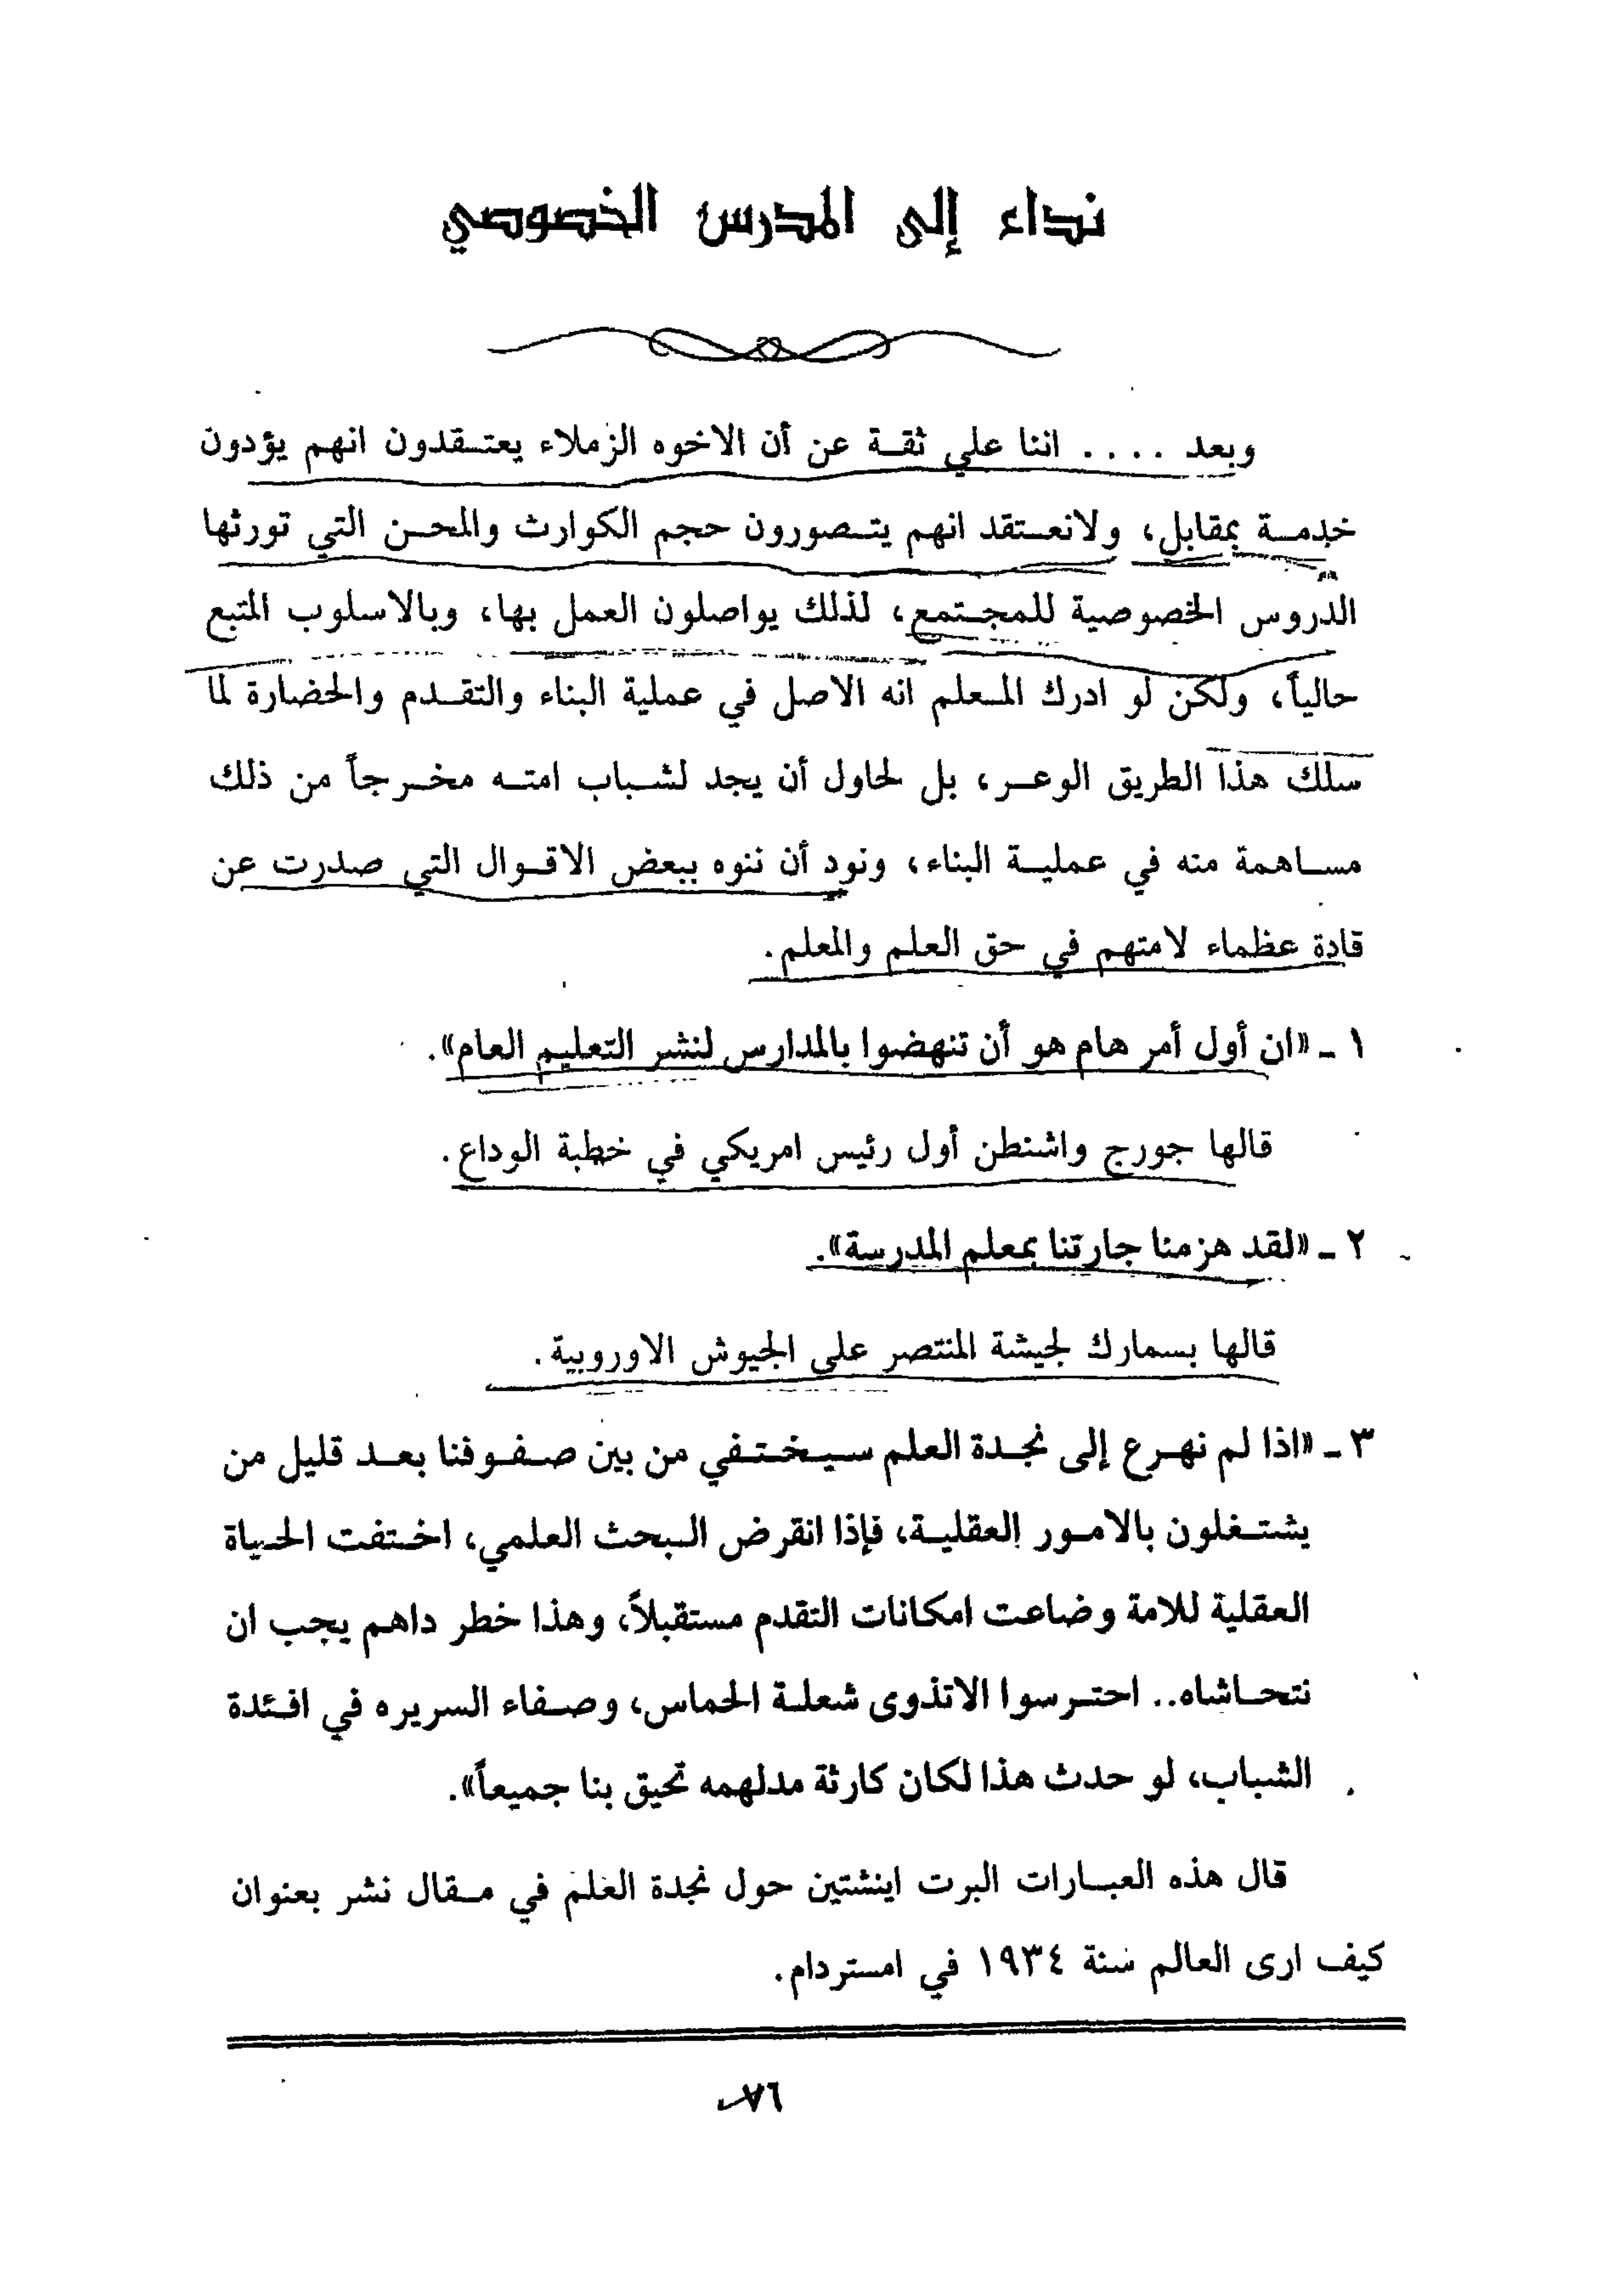 نداء إلى المدرس الخصوصي
وبعد .... اننا علي ثقة عن أن الاخوه الزملاء يعتقدون انهم يؤدون
خدمة بمقابل، ولانعتقد انهم يتصورون حجم الكوارث والمحن التي تورثها
الدروس الخصوصية للمجتمع، لذلك يواصلون العمل بها، وبالاسلوب المتبع
حالياً، ولكن لو ادرك المعلم انه الاصل في عملية البناء والتقدم والحضارة لما
سلك هذا الطريق الوعر، بل لحاول أن يجد لشباب امته مخرجاً من ذلك
مساهمة منه في عملية البناء، ونود أن ننوه ببعض الاقوال التي صدرت عن
قادة عظماء لامتهم في حق العلم والمعلم.
١ - «ان أول أمر هام هو أن تنهضوا بالمدارس لنشر التعليم العام».
قالها جورج واشنطن أول رئيس امريكي في خطبة الوداع.
٢ - «لقد هزمنا جارتنا بمعلم المدرسة».
قالها بسمارك لجيشة المنتصر على الجيوش الاوروبية.
٣ - «اذا لم نهرع إلى نجدة العلم سيختفي من بين صفوفنا بعد قليل من
يشتغلون بالامور العقلية، فإذا انقرض البحث العلمي، اختفت الحياة
العقلية للامة وضاعت امكانات التقدم مستقبلاً، وهذا خطر داهم يجب ان
نتحاشاه.. احترسوا الاتذوى شعلة الحماس، وصفاء السريره في افئدة
الشباب، لو حدث هذا لكان كارثة مدلهمه تحيق بنا جميعاً».
قال هذه العبارات البرت اينشتين حول نجدة العلم في مقال نشر بعنوان
كيف ارى العالم سنة ١٩٣٤ في امستردام.
٧٦